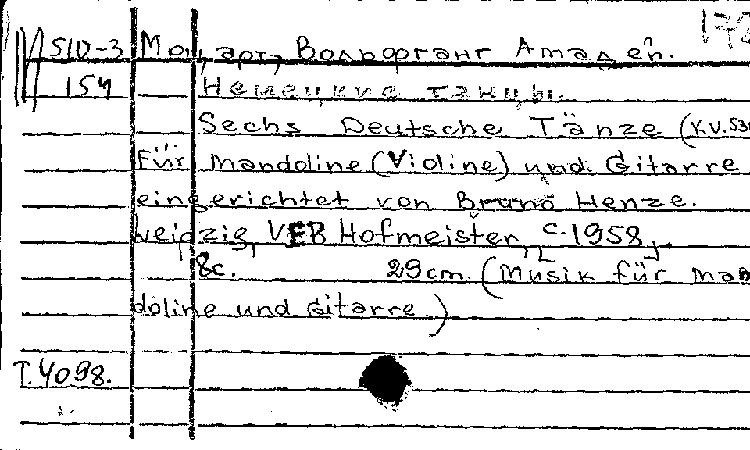 172
510-3 Моцарт, Вольфганг Амадей.
154 Немецкие танцы.
Sechs Deutsche Tänze (K.V.536
Für Mandoline (Violine) und Gitarre
eingerichtet von Bruno Henze.
Leipzig, VEB Hofmeister, c. 1958,
8c. 29cm. (Musik für Man
doline und Gitarre)
T.4098.